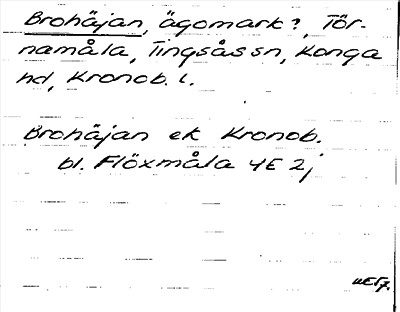 Brohäjan, ägomark?, Tör-
namåla, Tingsås sn, Konga
hd, Kronob. l.
Brohäjan ek Kronob.
bl. Flöxmåla 4E 2j